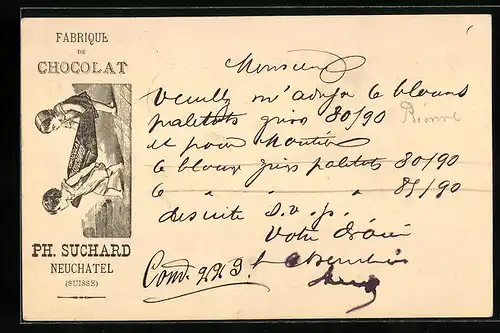 FABRIQUE
DE
CHOCOLAT
PH. SUCHARD
NEUCHATEL
(SUISSE)
Monsieur
Veuillez m'adresser 6 blouses
paletots gris 80/90
Bienne
et pour Moutier
6 blouses gris paletots 80/90
6 " " " 85/90
de suite s.v.p.
Votre
Cond. 223.